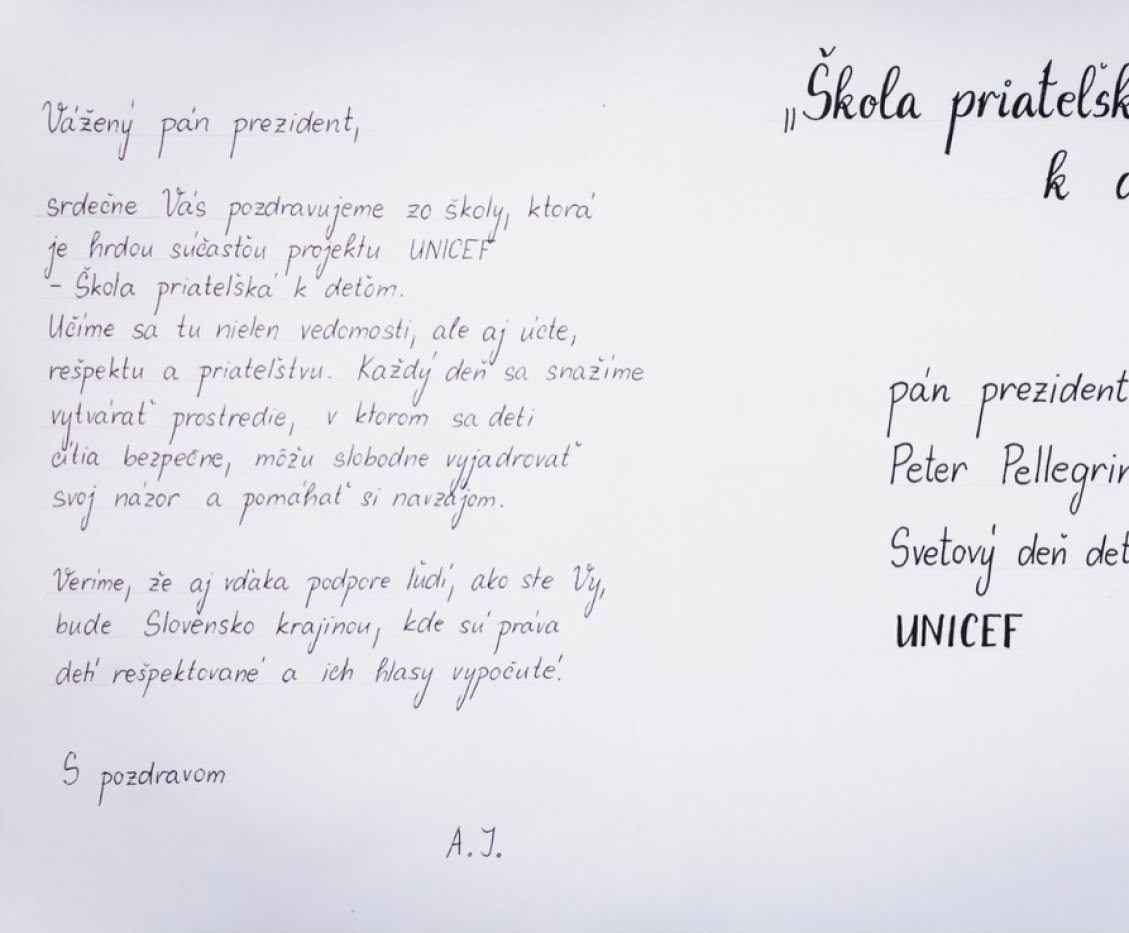 Vážený pán prezident,
srdečne Vás pozdravujeme zo školy, ktorá
je hrdou súčasťou projektu UNICEF
- Škola priateľská k deťom.
Učíme sa tu nielen vedomosti, ale aj úcte,
rešpektu a priateľstvu. Každý deň sa snažíme
vytvárať prostredie, v ktorom sa deti
cítia bezpečne, môžu slobodne vyjadrovať
svoj názor a pomáhať si navzájom.
Veríme, že aj vďaka podpore ľudí, ako ste Vy,
bude Slovensko krajinou, kde sú práva
detí rešpektované a ich hlasy vypočuté.
S pozdravom
A. J.
„Škola priateľsk
k
pán prezident
Peter Pellegrin
Svetový deň det
UNICEF